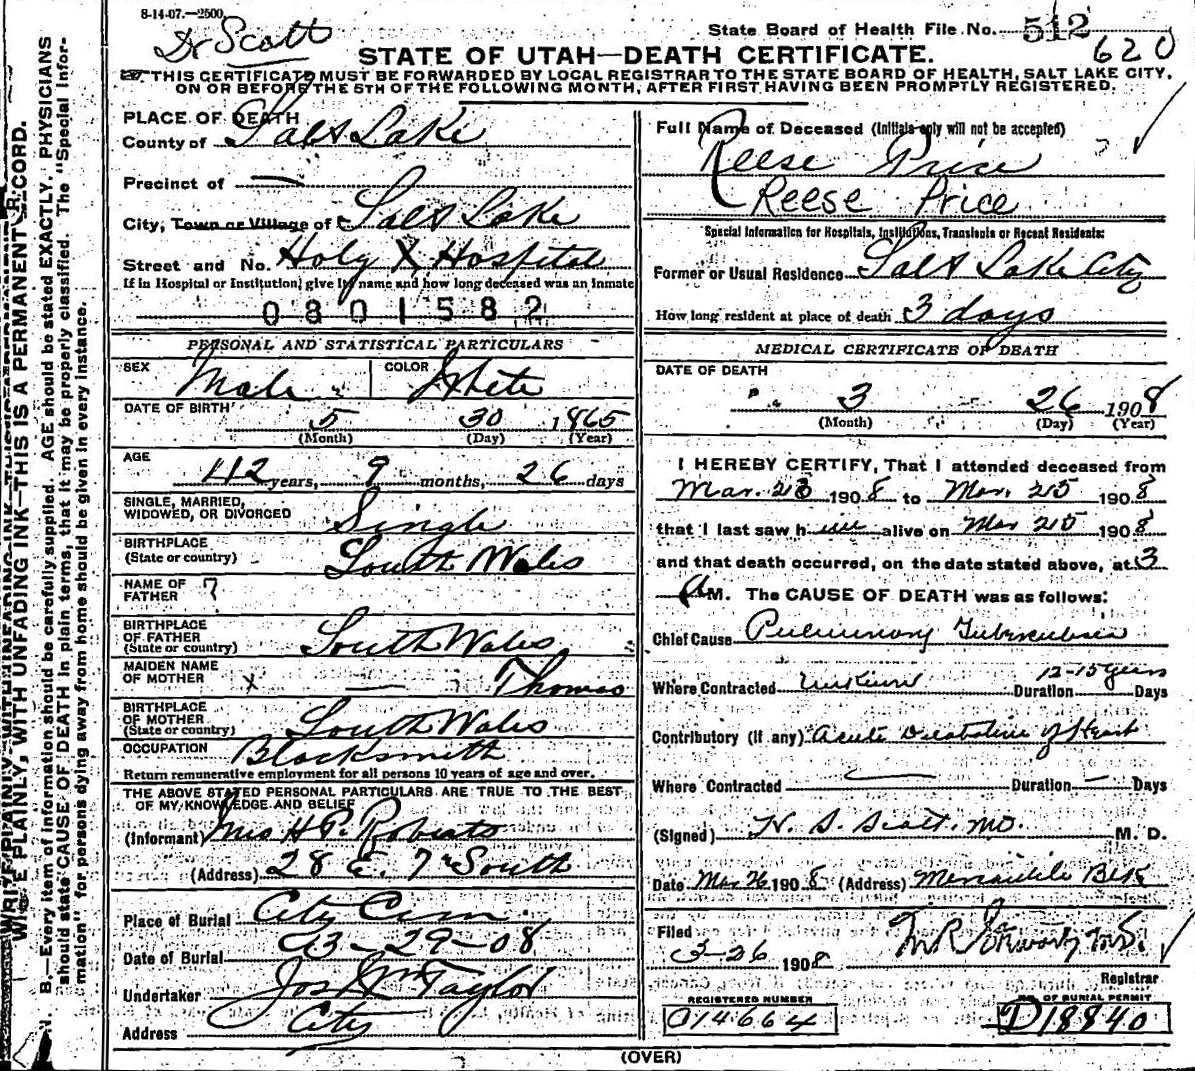 8-14-07.—2500.
Dr Scott
State Board of Health File No. 512
620
STATE OF UTAH—DEATH CERTIFICATE.
THIS CERTIFICATE MUST BE FORWARDED BY LOCAL REGISTRAR TO THE STATE BOARD OF HEALTH, SALT LAKE CITY,
ON OR BEFORE THE 5TH OF THE FOLLOWING MONTH, AFTER FIRST HAVING BEEN PROMPTLY REGISTERED.
PLACE OF DEATH
County of Salt Lake
Precinct of —
City, Town or Village of Salt Lake
Street and No. Holy X Hospital
If in Hospital or Institution, give its name and how long deceased was an inmate
0801582
PERSONAL AND STATISTICAL PARTICULARS
SEX Male COLOR White
DATE OF BIRTH 5 30 1865
(Month) (Day) (Year)
AGE 42 years, 9 months, 26 days
SINGLE, MARRIED,
WIDOWED, OR DIVORCED Single
BIRTHPLACE
(State or country) South Wales
NAME OF
FATHER ?
BIRTHPLACE
OF FATHER
(State or country) South Wales
MAIDEN NAME
OF MOTHER x — Thomas
BIRTHPLACE
OF MOTHER
(State or country) South Wales
OCCUPATION Blacksmith
Return remunerative employment for all persons 10 years of age and over.
THE ABOVE STATED PERSONAL PARTICULARS ARE TRUE TO THE BEST
OF MY KNOWLEDGE AND BELIEF
(Informant) Mrs H P. Roberts
(Address) 28 E. 7th South
Place of Burial City Cem
Date of Burial 3-29-08
Undertaker Jos Wm Taylor
Address City
Full Name of Deceased (Initials only will not be accepted)
Reese Price
Reese Price
Special Information for Hospitals, Institutions, Transients or Recent Residents:
Former or Usual Residence Salt Lake City
How long resident at place of death 3 days
MEDICAL CERTIFICATE OF DEATH
DATE OF DEATH
3 26 1908
(Month) (Day) (Year)
I HEREBY CERTIFY, That I attended deceased from
Mar. 23 1908 to Mar. 25 1908
that I last saw him alive on Mar 25 1908
and that death occurred, on the date stated above, at 3
A M. The CAUSE OF DEATH was as follows:
Chief Cause Pulmonary Tuberculosis
Where Contracted Unknown Duration 12-15 years Days
Contributory (if any) acute Dilatation of Heart
Where Contracted — Duration — Days
(Signed) H. S. Scott. MD M. D.
Date Mar 26 1908 (Address) Mercantile Blk
Filed
3-26 1908
Registrar
REGISTERED NUMBER
014664
OF BURIAL PERMIT
D18840
(OVER)
WRITE PLAINLY, WITH UNFADING INK—THIS IS A PERMANENT RECORD.
N. B.—Every item of information should be carefully supplied. AGE should be stated EXACTLY. PHYSICIANS
should state CAUSE OF DEATH in plain terms, that it may be properly classified. The "Special Infor-
mation" for persons dying away from home should be given in every instance.